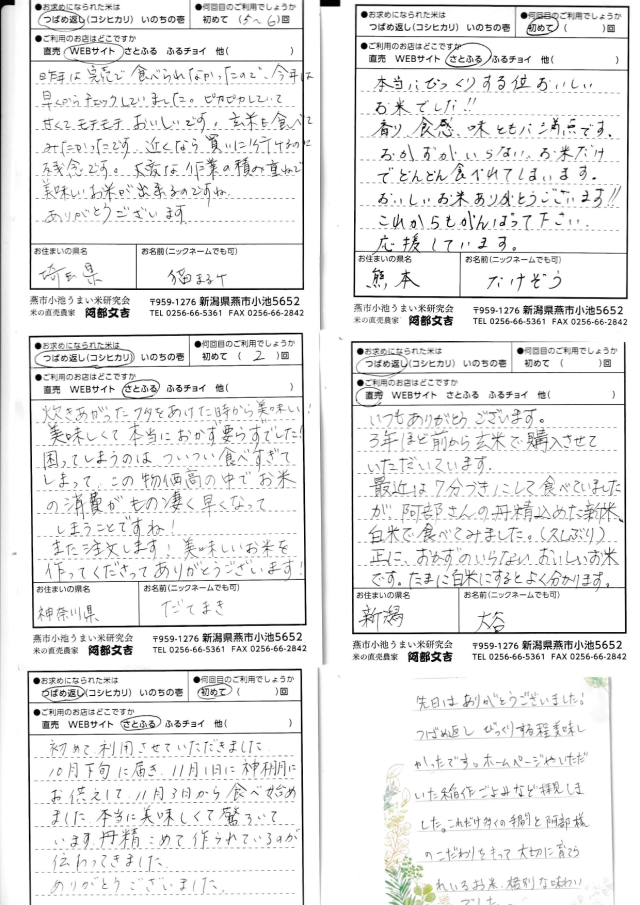 ●お求めになられた米は
つばめ返し(コシヒカリ) いのちの壱
●何回目のご利用でしょうか
初めて (5〜6)回
●ご利用のお店はどこですか
直売 WEBサイト さとふる ふるチョイ 他( )
昨年は完売で食べられなかったので、今年は
早くからチェックしていました。ピカピカしていて
甘くてモチモチおいしいです。玄米も食べて
みたかったです。近くなら買いに行けるのに
残念です。大変な作業の積み重ねで
美味しいお米が出来るのですね
ありがとうございます
お住まいの県名
埼玉県
お名前(ニックネームでも可)
燕市小池うまい米研究会
米の直売農家 阿部文吉
〒959-1276 新潟県燕市小池5652
TEL 0256-66-5361 FAX 0256-66-2842
●お求めになられた米は
つばめ返し(コシヒカリ) いのちの壱
●何回目のご利用でしょうか
初めて ( )回
●ご利用のお店はどこですか
直売 WEBサイト さとふる ふるチョイ 他( )
本当にびっくりする位おいしい
お米でした!!
香り 食感、味ともに満点です。
おかずがいらない、お米だけ
でどんどん食べれてしまいます。
おいしいお米ありがとうございます!!
これからもがんばって下さい。
応援しています。
お住まいの県名
熊本
お名前(ニックネームでも可)
たけぞう
燕市小池うまい米研究会
米の直売農家 阿部文吉
〒959-1276 新潟県燕市小池5652
TEL 0256-66-5361 FAX 0256-66-2842
●お求めになられた米は
つばめ返し(コシヒカリ) いのちの壱
●何回目のご利用でしょうか
初めて (2)回
●ご利用のお店はどこですか
直売 WEBサイト さとふる ふるチョイ 他( )
炊きあがったフタをあけた時から美味しい!
美味しくて本当におかず要らずでした!
困ってしまうのは ついつい食べすぎて
しまって、この物価高の中でお米
の消費がもの凄く早くなって
しまうことですね!
また注文します!美味しいお米を
作ってくださってありがとうございます!
お住まいの県名
神奈川県
お名前(ニックネームでも可)
だてまき
燕市小池うまい米研究会
米の直売農家 阿部文吉
〒959-1276 新潟県燕市小池5652
TEL 0256-66-5361 FAX 0256-66-2842
●お求めになられた米は
つばめ返し(コシヒカリ) いのちの壱
●何回目のご利用でしょうか
初めて ( )回
●ご利用のお店はどこですか
直売 WEBサイト さとふる ふるチョイ 他( )
いつもありがとうございます。
3年ほど前から玄米で購入させて
いただいています。
最近は7分づきにして食べていました
が、阿部さんの丹精込めた新米、
白米で食べてみました。(久しぶり)
正に、おかずのいらないおいしいお米
です。たまに白米にするとよく分かります。
お住まいの県名
新潟
お名前(ニックネームでも可)
大谷
燕市小池うまい米研究会
米の直売農家 阿部文吉
〒959-1276 新潟県燕市小池5652
TEL 0256-66-5361 FAX 0256-66-2842
●お求めになられた米は
つばめ返し(コシヒカリ) いのちの壱
●何回目のご利用でしょうか
初めて ( )回
●ご利用のお店はどこですか
直売 WEBサイト さとふる ふるチョイ 他( )
初めて利用させていただきました
10月下旬に届き、11月1日に神棚に
お供えして、11月3日から食べ始め
ました。本当に美味しくて驚いて
います。丹精こめて作られているのが
伝わってきました。
ありがとうございました。
先日はありがとうございました!
つばめ返し びっくりする程美味し
かったです。ホームページやいただ
いた稲作ごよみなど拝見しま
した。これだけ多くの手間と阿部様
のこだわりをもって大切に育てら
れているお米、格別な味わい
でした